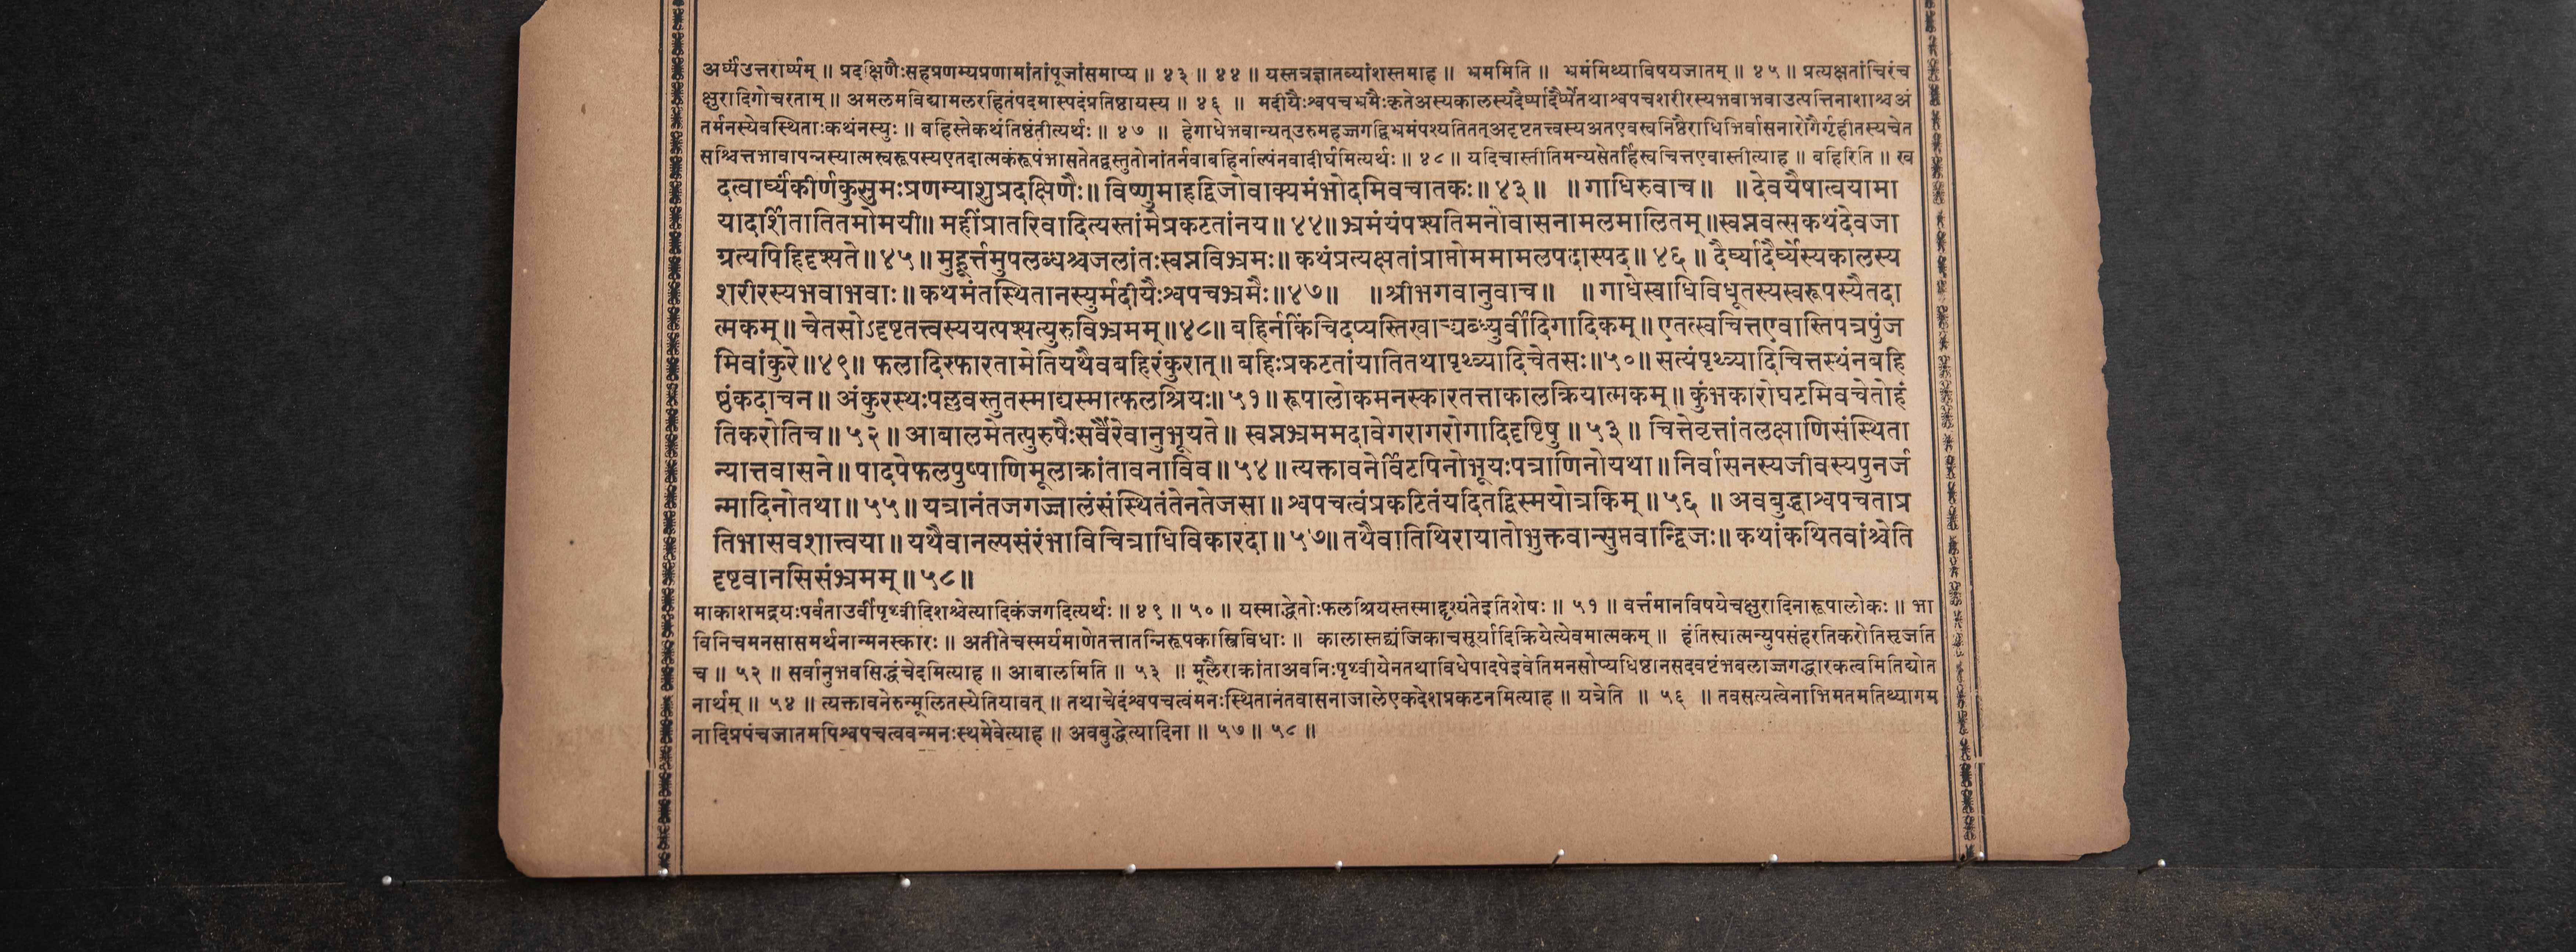 अर्घ्यंउत्तरार्घ्यम् ॥ प्रदक्षिणैःसहप्रणम्यप्रणामांतांपूजांसमाप्य ॥ ४३ ॥ ४४ ॥ यस्तत्रज्ञातव्यांशस्तमाह ॥ भ्रममिति ॥ भ्रमंमिथ्याविषयजातम् ॥ ४५ ॥ प्रत्यक्षतांचिरंच
क्षुरादिगोचरताम् ॥ अमलमविद्यामलरहितंपदमास्पदंप्रतिष्ठायस्य ॥ ४६ ॥ मदीयैःश्वपचभ्रमैःकृतेअस्यकालस्यदैर्घ्यादैर्घ्येतथाश्वपचशरीरस्यभवाभवाउत्पत्तिनाशाश्चअं
तर्मनस्येवस्थिताःकथंनस्युः ॥ बहिस्तेकथंतिष्ठंतीत्यर्थः ॥ ४७ ॥ हेगाधेभवान्यत्उरुमहज्जगद्विभ्रमंपश्यतितत्अदृष्टतत्त्वस्यअतएवस्वनिष्ठैराधिभिर्वासनारोगैर्गृहीतस्यचेत
सश्चित्तभावापन्नस्यात्मस्वरूपस्यएतदात्मकंरूपंभासतेतद्वस्तुतोनांतर्नवाबहिर्नाल्पंनवादीर्घमित्यर्थः ॥ ४८ ॥ यदिचास्तीतिमन्यसेतर्हिस्वचित्तएवास्तीत्याह ॥ बहिरिति ॥ ख
दत्वार्घ्यंकीर्णकुसुमःप्रणम्याशुप्रदक्षिणैः ॥ विष्णुमाहद्विजोवाक्यमंभोदमिवचातकः ॥ ४३ ॥ ॥ गाधिरुवाच ॥ ॥ देवयैषात्वयामा
यादर्शितातितमोमयी ॥ महींप्रातरिवादित्यस्तांमेप्रकटतांनय ॥ ४४ ॥ भ्रमंयंपश्यतिमनोवासनामलमालितम् ॥ स्वप्नवत्सकथंदेवजा
ग्रत्यपिहिदृश्यते ॥ ४५ ॥ मुहूर्त्तमुपलब्धश्चजलांतःस्वप्नविभ्रमः ॥ कथंप्रत्यक्षतांप्राप्तोममामलपदास्पद ॥ ४६ ॥ दैर्घ्यादैर्घ्येस्यकालस्य
शरीरस्यभवाभवाः ॥ कथमंतस्थितानस्युर्मदीयैःश्वपचभ्रमैः ॥ ४७ ॥ ॥ श्रीभगवानुवाच ॥ ॥ गाधेस्वाधिविधूतस्यस्वरूपस्यैतदा
त्मकम् ॥ चेतसोऽदृष्टतत्त्वस्ययत्पश्यत्युरुविभ्रमम् ॥ ४८ ॥ बहिर्नकिंचिदप्यस्तिखाद्र्यब्ध्युर्वीदिगादिकम् ॥ एतत्स्वचित्तएवास्तिपत्रपुंज
मिवांकुरे ॥ ४९ ॥ फलादिस्फारतामेतियथैवबहिरंकुरात् ॥ बहिःप्रकटतांयातितथापृथ्व्यादिचेतसः ॥ ५० ॥ सत्यंपृथ्व्यादिचित्तस्थंनबहि
ष्ठंकदाचन ॥ अंकुरस्थःपल्लवस्तुतस्माद्यस्मात्फलश्रियः ॥ ५१ ॥ रूपालोकमनस्कारतत्ताकालक्रियात्मकम् ॥ कुंभकारोघटमिवचेतोहं
तिकरोतिच ॥ ५२ ॥ आबालमेतत्पुरुषैःसर्वैरेवानुभूयते ॥ स्वप्नभ्रममदावेगरागरोगादिदृष्टिषु ॥ ५३ ॥ चित्तेवृत्तांतलक्षाणिसंस्थिता
न्यात्तवासने ॥ पादपेफलपुष्पाणिमूलाक्रांतावनाविव ॥ ५४ ॥ त्यक्तावनेर्विटपिनोभूयःपत्राणिनोयथा ॥ निर्वासनस्यजीवस्यपुनर्ज
न्मादिनोतथा ॥ ५५ ॥ यत्रानंतजगज्जालंसंस्थितंतेनतेजसा ॥ श्वपचत्वंप्रकटितंयदितद्विस्मयोत्रकिम् ॥ ५६ ॥ अवबुद्धाश्वपचताप्र
तिभासवशात्त्वया ॥ यथैवानल्पसंरंभाविचित्राधिविकारदा ॥ ५७ ॥ तथैवातिथिरायातोभुक्तवान्सुप्तवान्द्विजः ॥ कथांकथितवांश्चेति
दृष्टवानसिसंभ्रमम् ॥ ५८ ॥
माकाशमद्रयःपर्वताउर्वीपृथ्वीदिशश्चेत्यादिकंजगदित्यर्थः ॥ ४९ ॥ ५० ॥ यस्माद्धेतोःफलश्रियस्तस्माद्दृश्यंतेइतिशेषः ॥ ५१ ॥ वर्त्तमानविषयेचक्षुरादिनारूपालोकः ॥ भा
विनिचमनसासमर्थनान्मनस्कारः ॥ अतीतेचस्मर्यमाणेतत्तातन्निरूपकास्त्रिविधाः ॥ कालास्तद्व्यंजिकाचसूर्यादिक्रियेत्येवमात्मकम् ॥ हंतिस्वात्मन्युपसंहरतिकरोतिसृजति
च ॥ ५२ ॥ सर्वानुभवसिद्धंचेदमित्याह ॥ आबालमिति ॥ ५३ ॥ मूलैराक्रांताअवनिःपृथ्वीयेनतथाविधेपादपेइवेतिमनसोप्यधिष्ठानसदवष्टंभबलाज्जगद्धारकत्वमितिद्योत
नार्थम् ॥ ५४ ॥ त्यक्तावनेरुन्मूलितस्येतियावत् ॥ तथाचेदंश्वपचत्वंमनःस्थितानंतवासनाजालेएकदेशप्रकटनमित्याह ॥ यत्रेति ॥ ५६ ॥ तवसत्यत्वेनाभिमतमतिथ्यागम
नादिप्रपंचजातमपिश्वपचत्ववन्मनःस्थमेवेत्याह ॥ अवबुद्धेत्यादिना ॥ ५७ ॥ ५८ ॥